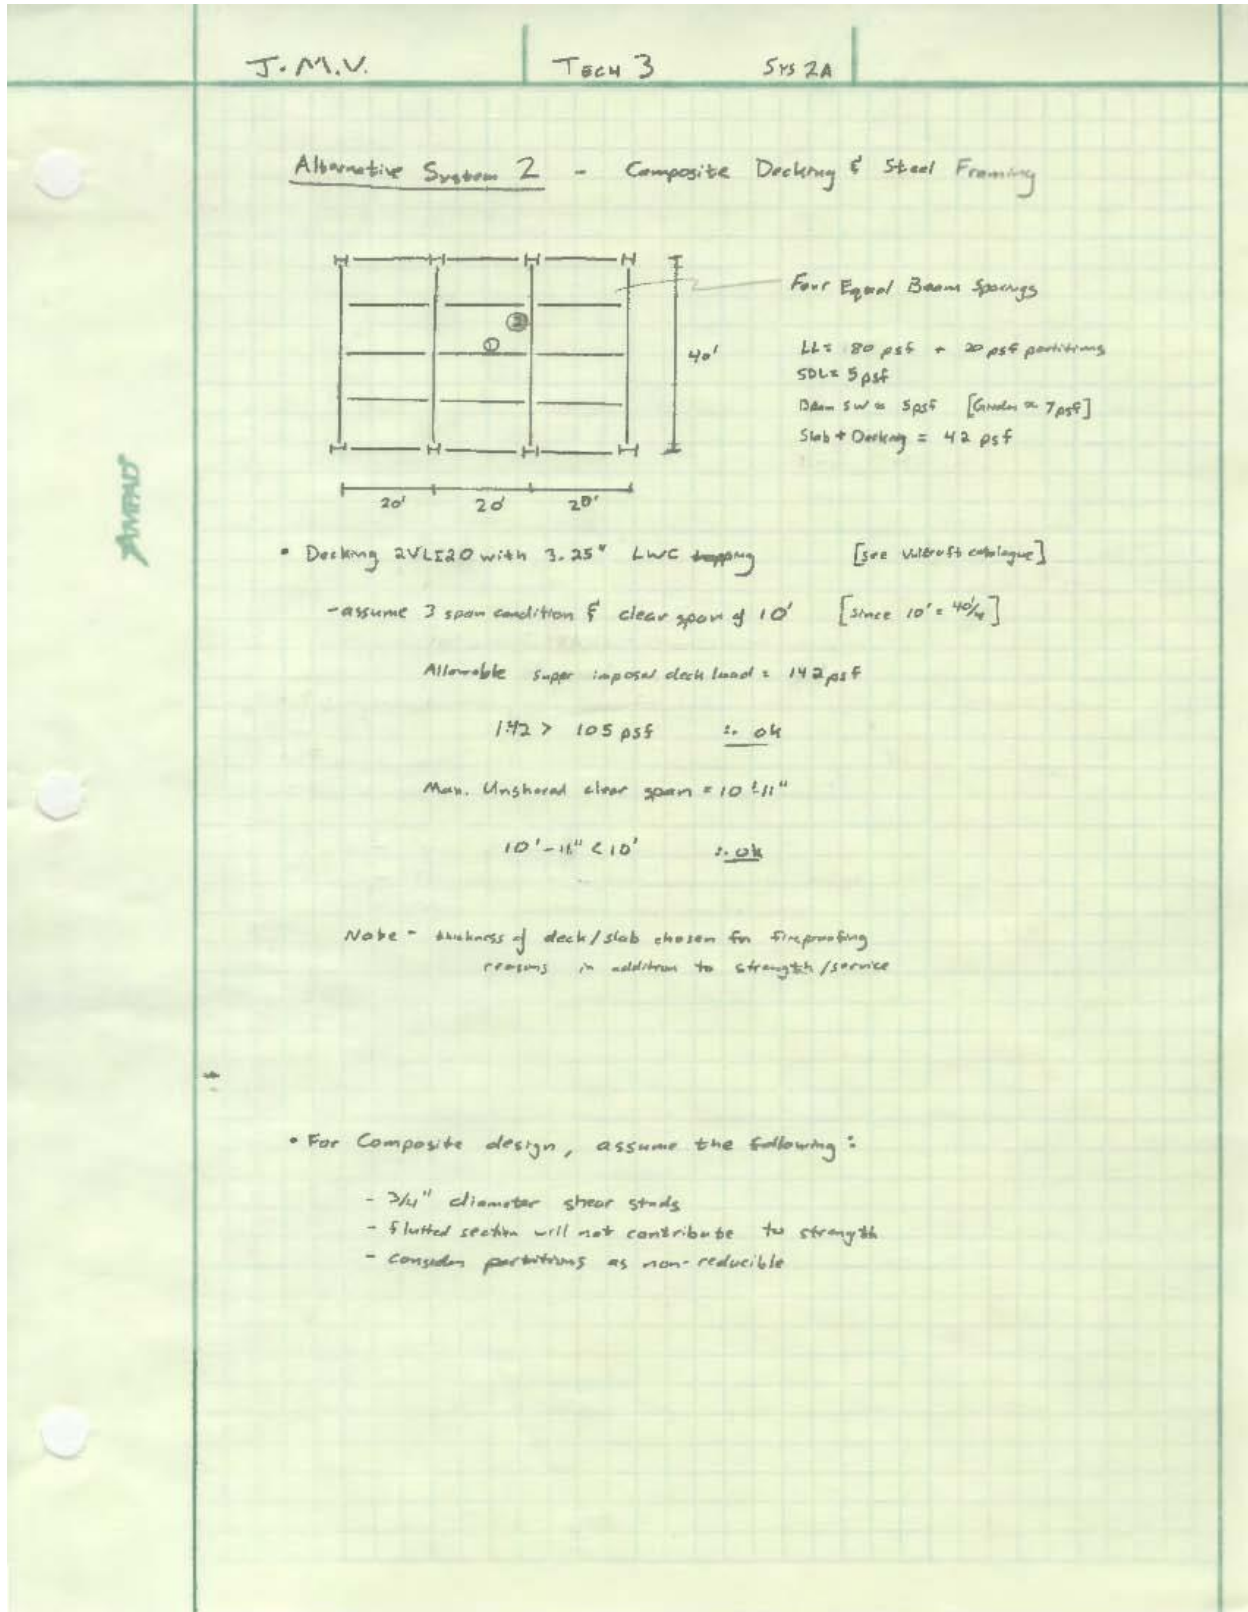 J.M.V.
TECH 3
SYS 2A
Alternative System 2 - Composite Decking & Steel Framing
Four Equal Beam Spacings
② 
①
40'
LL = 80 psf + 20 psf partitions
SDL = 5 psf
Beam SW ≈ 5 psf [Girder ≈ 7 psf]
Slab + Decking = 42 psf
20' 20' 20'
AMPAD
• Decking 2VLI20 with 3.25" LWC topping [see Vulcraft catalogue]
- assume 3 span condition & clear span of 10' [since 10' = 40'/4]
Allowable super imposed deck load = 142 psf
142 > 105 psf ∴ ok
Max. Unshored clear span = 10'-11"
10'-11" < 10' ∴ ok
Note - thickness of deck/slab chosen for fireproofing
reasons in addition to strength/service
• For Composite design, assume the following:
- 3/4" diameter shear studs
- flutted section will not contribute to strength
- consider partitions as non-reducible